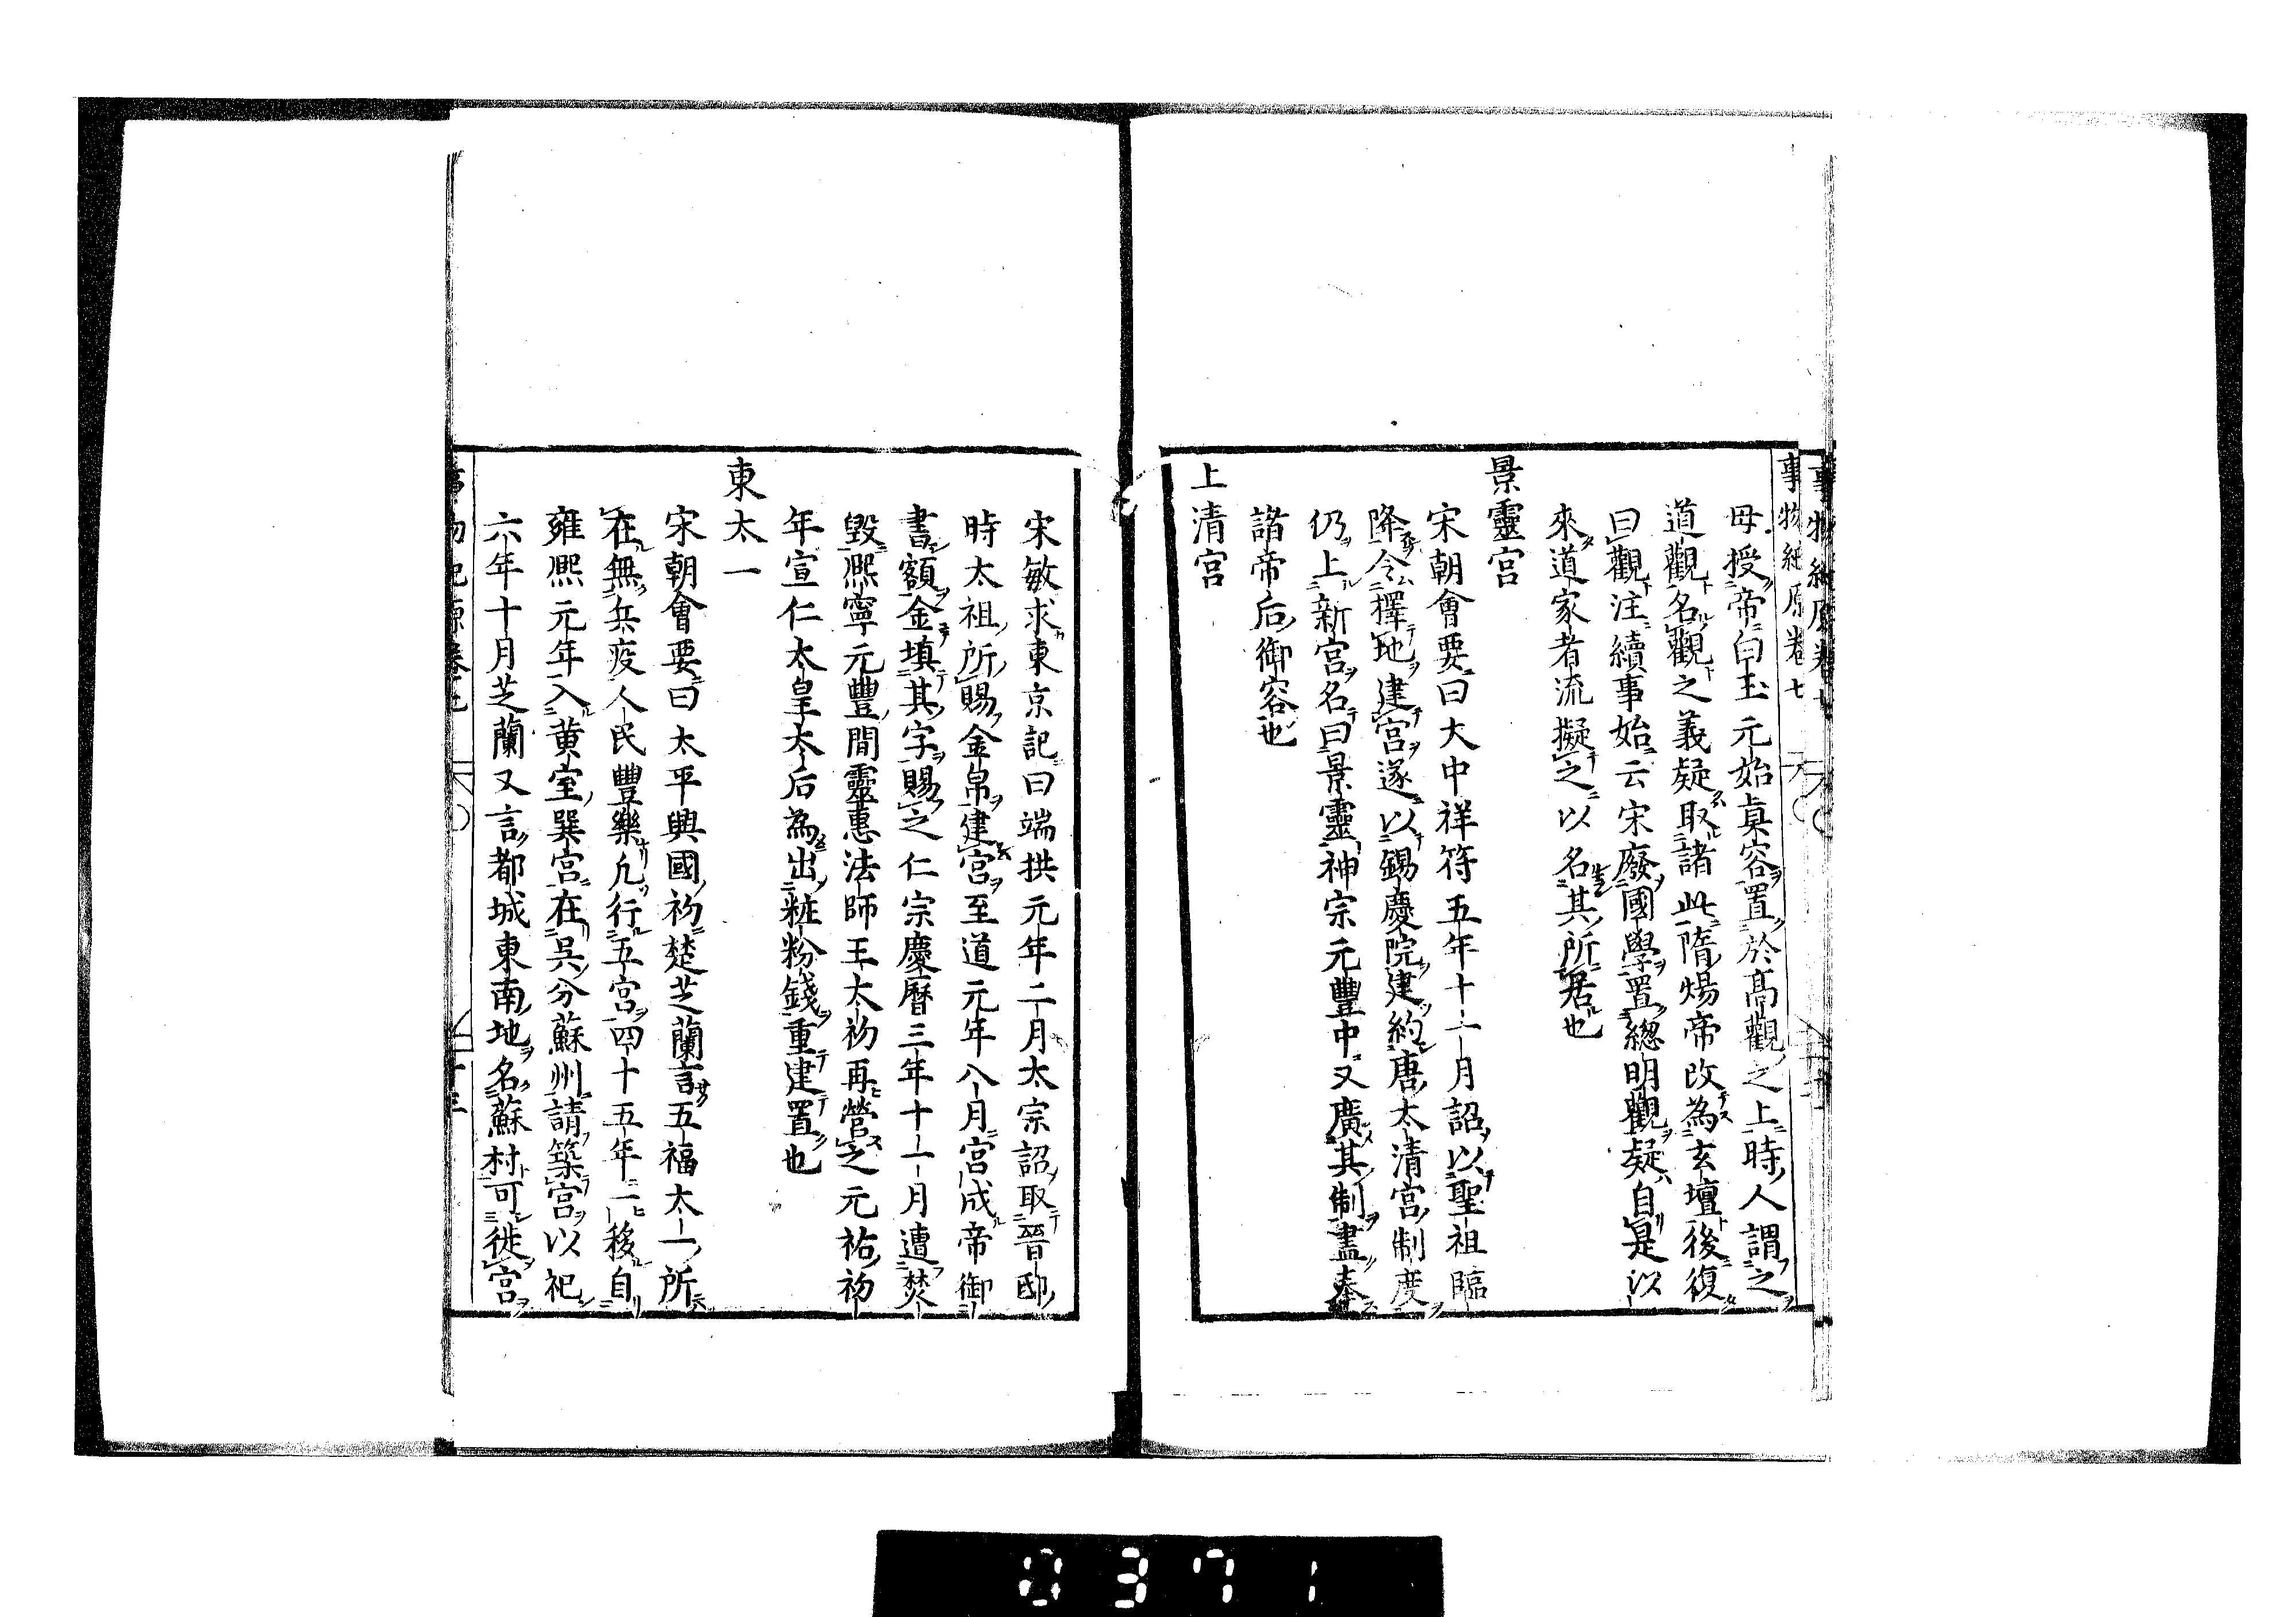 事物紀原卷七
母授帝白玉元始眞容置於高觀之上時人謂之
道觀名觀之義疑取諸此隋煬帝改為玄壇後復
曰觀注續事始云宋廢國學置總明觀疑自是以
來道家者流擬之以名其所居也
景靈宮
宋朝會要曰大中祥符五年十一月詔以聖祖臨
降令擇地建宮遂以錫慶院建約唐太清宮制度
仍上新宮名曰景靈神宗元豐中又廣其制盡奉
諸帝后御容也
上清宮
宋敏求東京記曰端拱元年二月太宗詔取晉邸
時太祖所賜金帛建宮至道元年八月宮成帝御
書額金填其字賜之仁宗慶曆三年十一月遭焚
毀熙寧元豐間靈惠法師王太初再營之元祐初
年宣仁太皇太后為出粧粉錢重建置也
東太一
宋朝會要曰太平興國初楚芝蘭言五福太一所
在無兵疫人民豐樂凡行五宮四十五年一移自
雍熙元年入黃室巽宮在吳分蘇州請築宮以祀
六年十月芝蘭又言都城東南地名蘇村可徙宮
0371